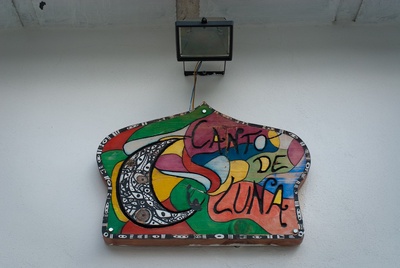 CANTO
DE
LUNA